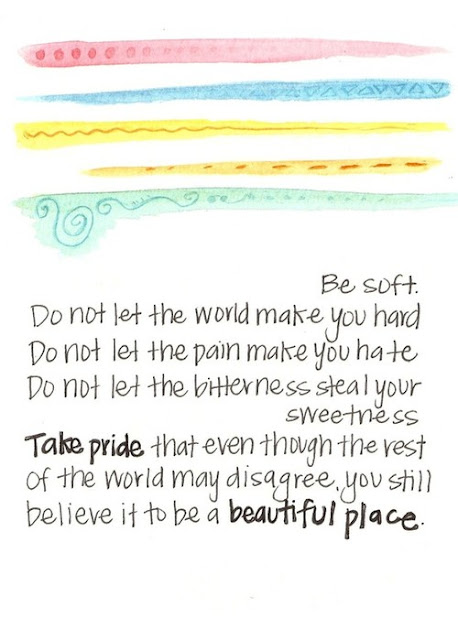 Be soft.
Do not let the world make you hard
Do not let the pain make you hate
Do not let the bitterness steal your
sweetness
Take pride that even though the rest
of the world may disagree, you still
believe it to be a beautiful place.